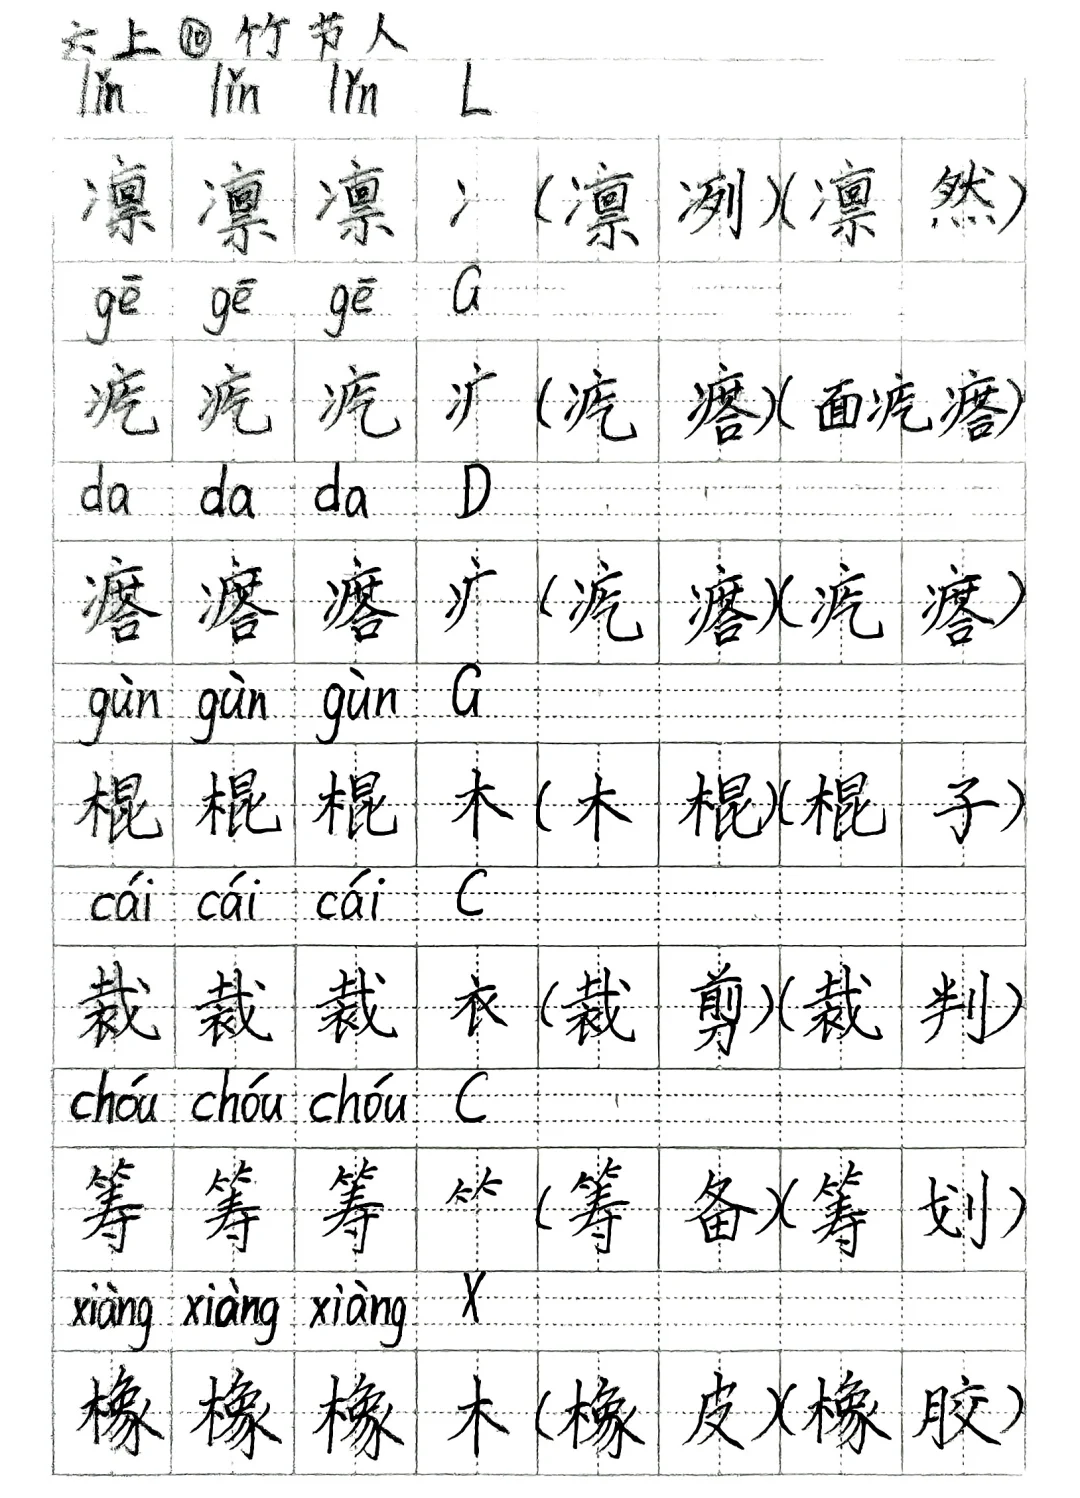 六上⑩竹节人
lǐn lǐn lǐn L
凛 凛 凛 冫 (凛 冽)(凛 然)
gē gē gē G
疙 疙 疙 疒 (疙 瘩)(面疙瘩)
da da da D
瘩 瘩 瘩 疒 (疙 瘩)(疙 瘩)
gùn gùn gùn G
棍 棍 棍 木 (木 棍)(棍 子)
cái cái cái C
裁 裁 裁 衣 (裁 剪)(裁 判)
chóu chóu chóu C
筹 筹 筹 ⺮ (筹 备)(筹 划)
xiàng xiàng xiàng X
橡 橡 橡 木 (橡 皮)(橡 胶)